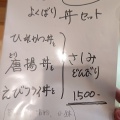 よくばり丼セット
ひれかつ丼と
唐揚丼と
えびフライ丼と
さしみ
どんぶり
1500-